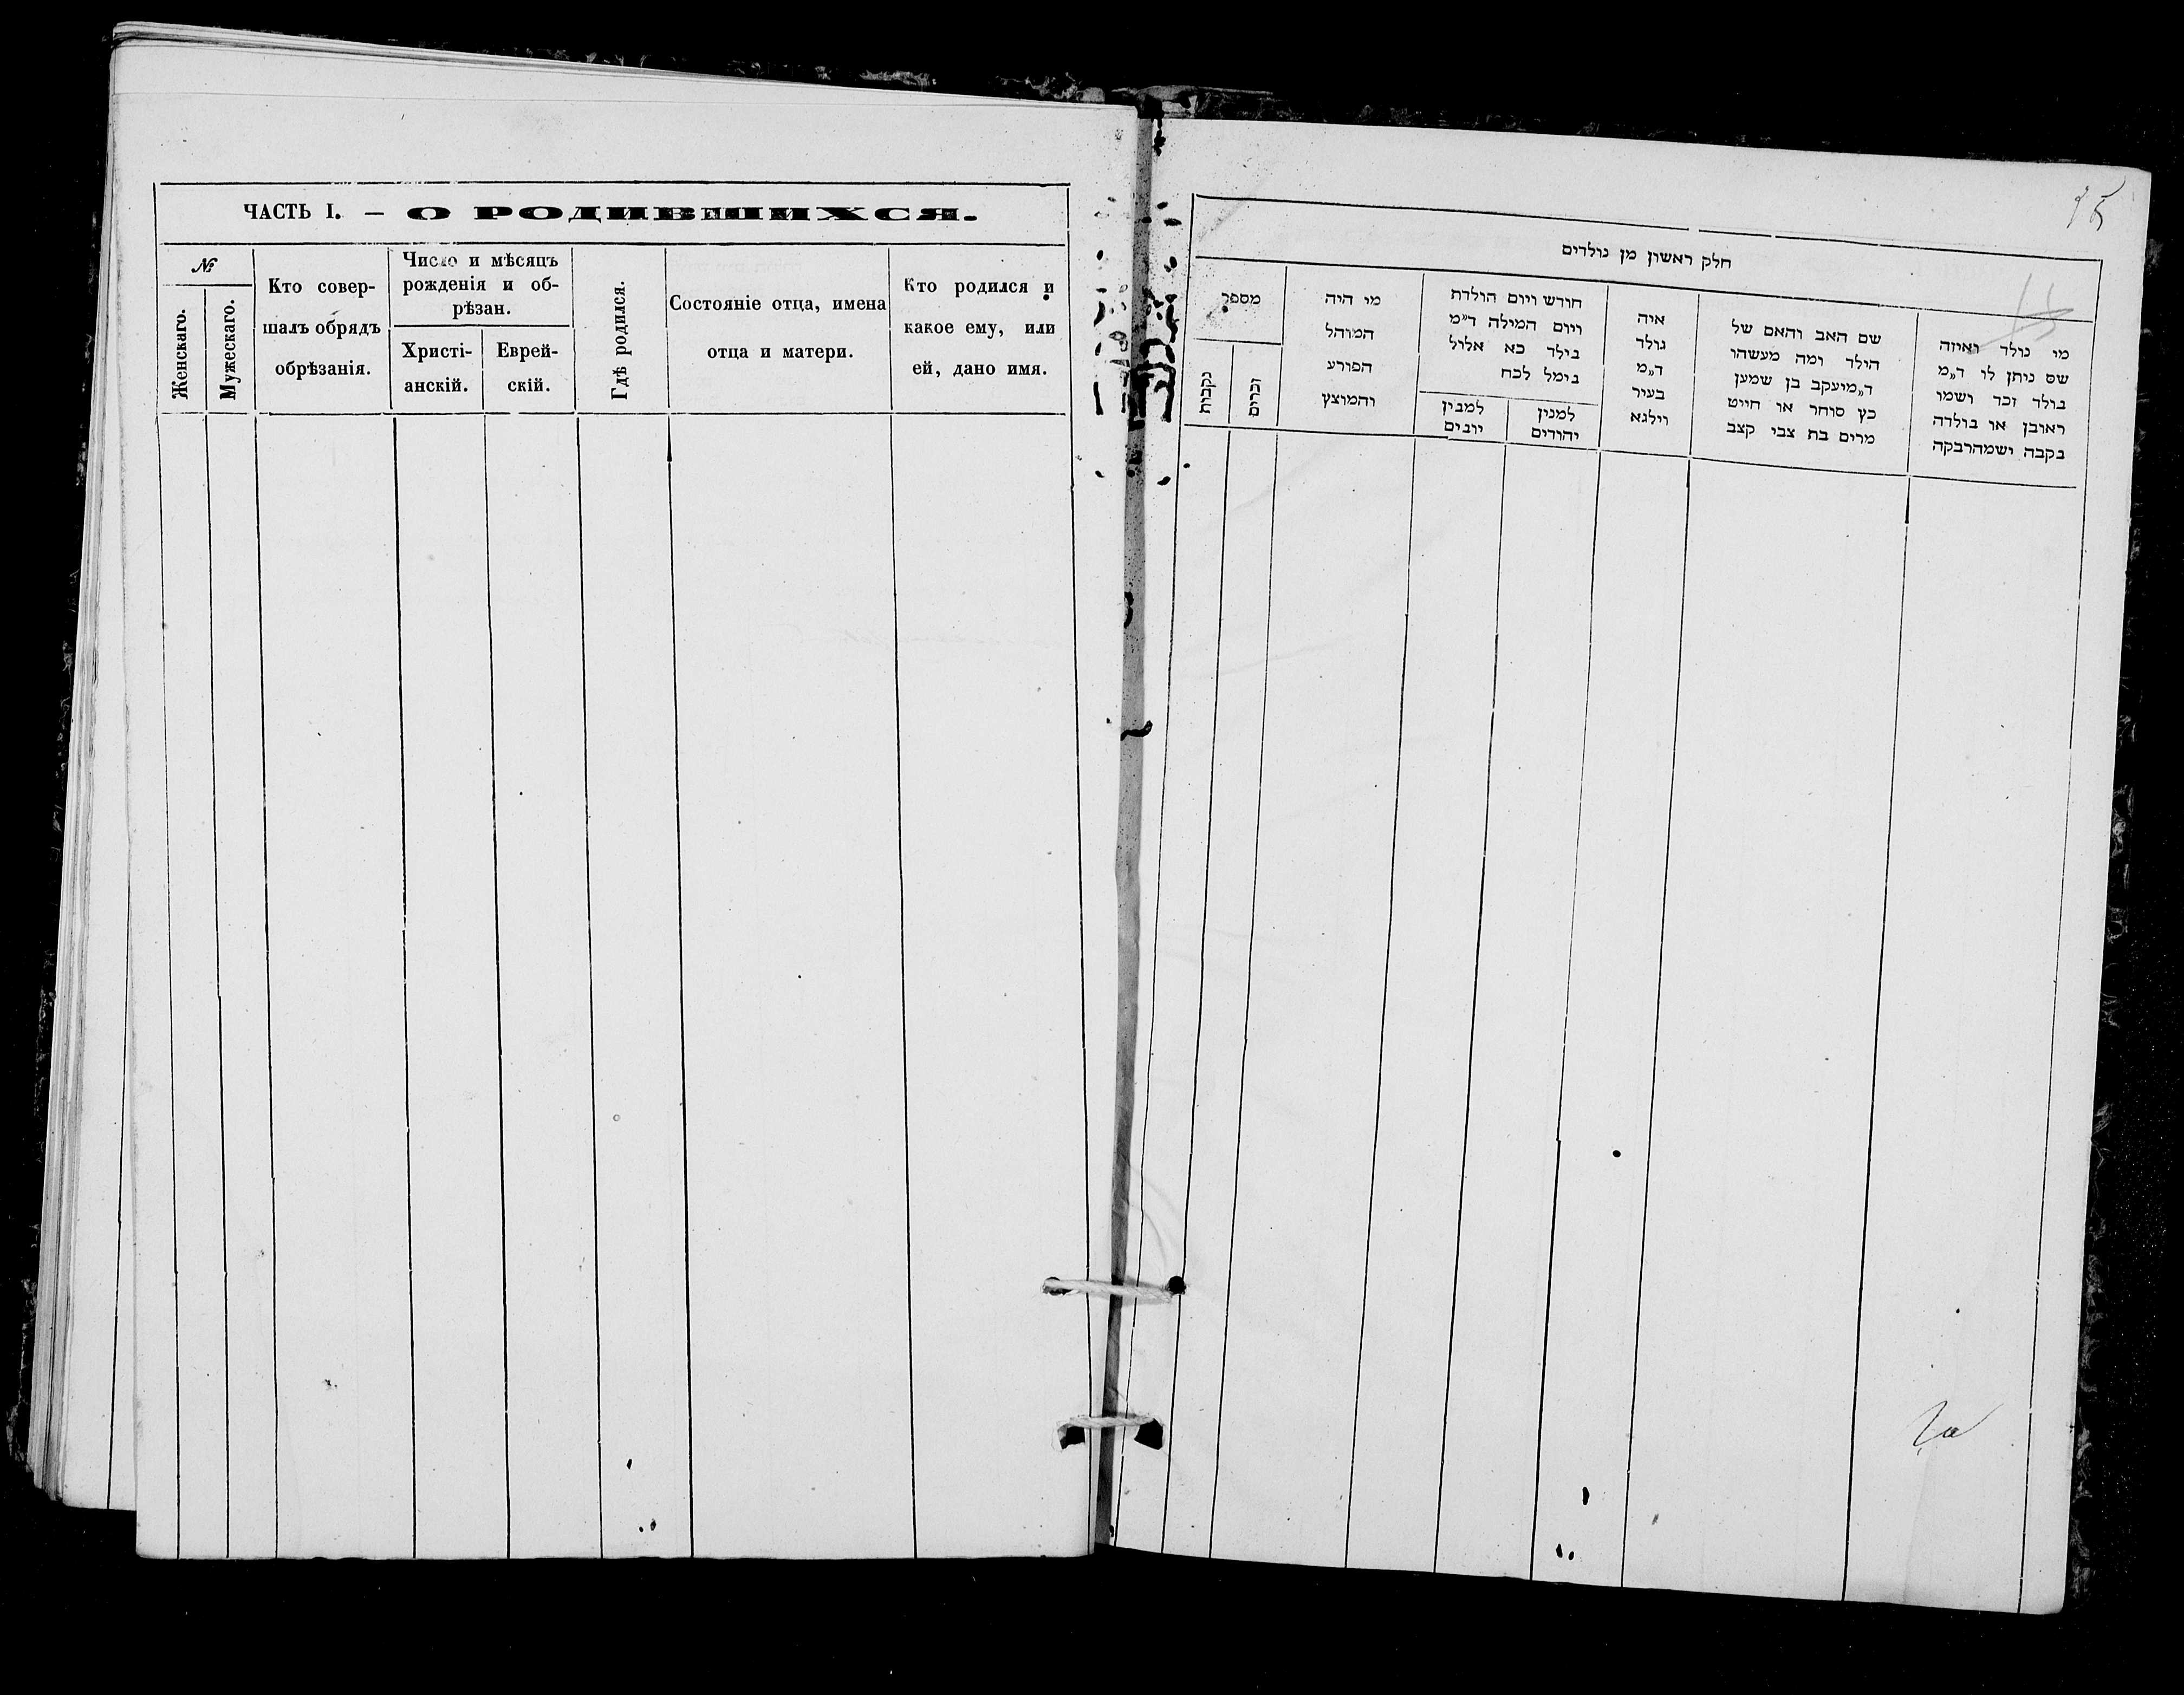 ЧАСТЬ I. — О РОДИВШИХСЯ.
№
Женскаго.
Мужескаго.
Кто совер-
шалъ обрядъ
обрѣзанія.
Число и мѣсяцъ
рожденія и об-
рѣзан.
Христі-
анскій.
Еврей-
скій.
Гдѣ родился.
Состояніе отца, имена
отца и матери.
Кто родился и
какое ему, или
ей, дано имя.
חלק ראשון מן נולדים
מי נולד ואיזה
שם ניתן לו ד״מ
בולד זכר ושמו
ראובן או בולדה
בקבה ישמהרבקה
שם האב והאם של
הילד ומה מעשהו
ד״מיעקב בן שמען
כץ סוחר או חייט
מרים בת צבי קצב
איה
נולד
ד״מ
בעיר
וילגא
חודש ויום הולדת
ויום המילה ד״מ
בילד כא אלול
בימל לכח
למנין
יהודים
למבין
יובים
מי היה
המוהל
הפורע
והמוצץ
מספר
זכרים
נקבות